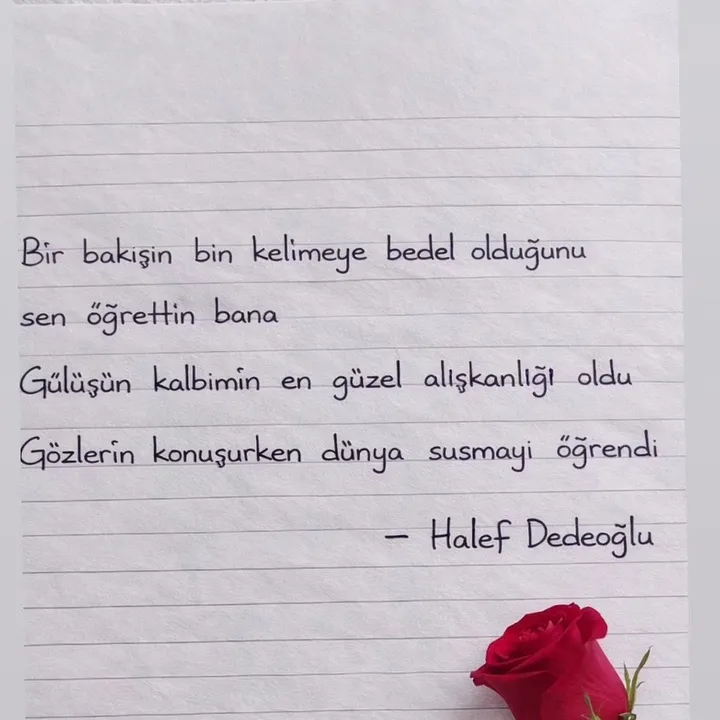 Bir bakişin bin kelimeye bedel olduğunu
sen őğrettin bana
Gűlüşün kalbimin en güzel alışkanlığı oldu
Gözlerin konuşurken dünya susmayi őğrendi
— Halef Dedeoğlu